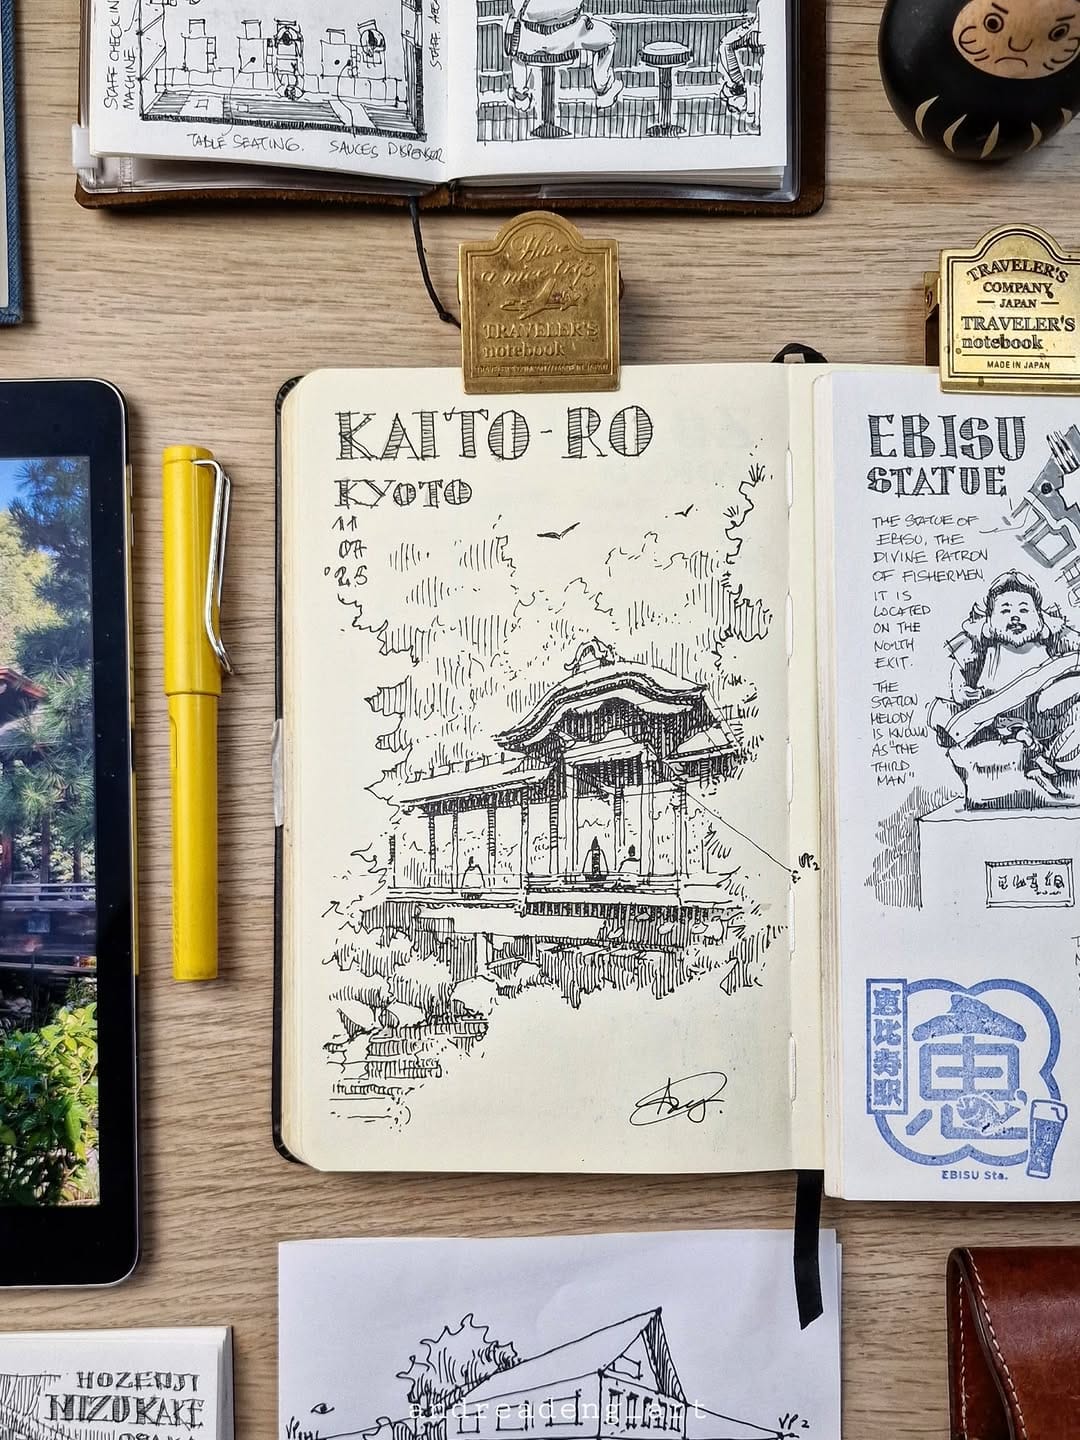 STAFF CHECK IN
MACHINE
TABLE SEATING.
SAUCES DISPENSER
Have
a nice trip
TRAVELER'S
notebook
TRAVELER'S
COMPANY
JAPAN
TRAVELER'S
notebook
MADE IN JAPAN
KAITO-RO
KYOTO
11
07
'25
VP2
EBISU
STATUE
THE STATUE OF
EBISU, THE
DIVINE PATRON
OF FISHERMEN
IT IS
LOCATED
ON THE
NORTH
EXIT.
THE
STATION
MELODY
IS KNOWN
AS "THE
THIRD
MAN"
恵比寿駅
EBISU Sta.
HOZENJI
MIZUKAKE
OSAKA
VP2
andreadeng_art